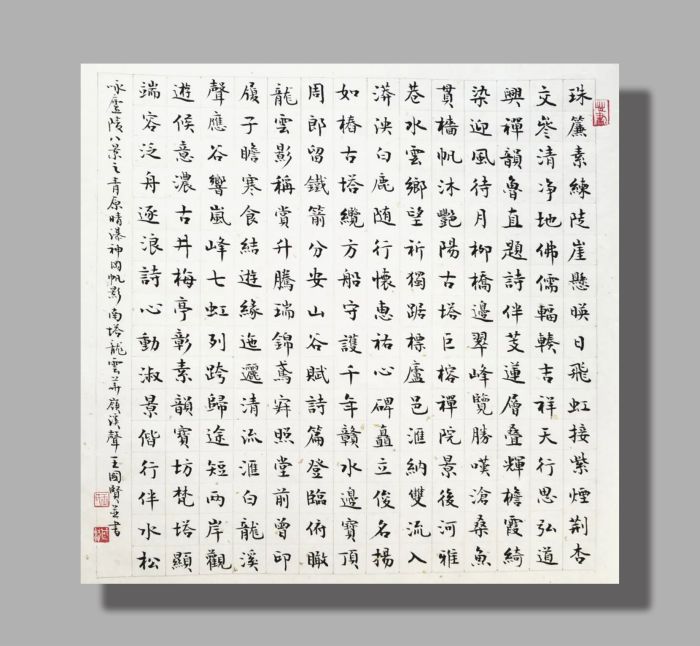 珠簾素練陡崖懸暎日飛虹接紫煙荆杏
文岺清净地佛儒輻輳吉祥天行思弘道
興禪韻魯直題詩伴芰蓮層叠輝檐霞綺
染迎風待月柳橋邊翠峰覽勝嘆滄桑魚
貫檣帆沐艷陽古塔巨榕禪院景後河雅
巷水雲鄉望祈獨踞標廬邑滙納雙流入
漭泱白鹿随行懷惠祐心碑矗立俊名揚
如椿古塔纜方船守護千年贛水邊寶頂
周郎留鐵箭分安山谷賦詩篇登臨俯瞰
龍雲影稱賞升騰瑞錦鳶寎照堂前曾印
履子瞻寒食結遊緣迤邐清流滙白龍溪
聲應谷響嵐峰七虹列跨歸途短兩岸觀
遊候意濃古井梅亭彰素韻寶坊梵塔顯
端容泛舟逐浪詩心動淑景偕行伴水松
咏廬陵八景之青原晴瀑神岡帆影南塔龍雲華嶺溪聲王國賢並書